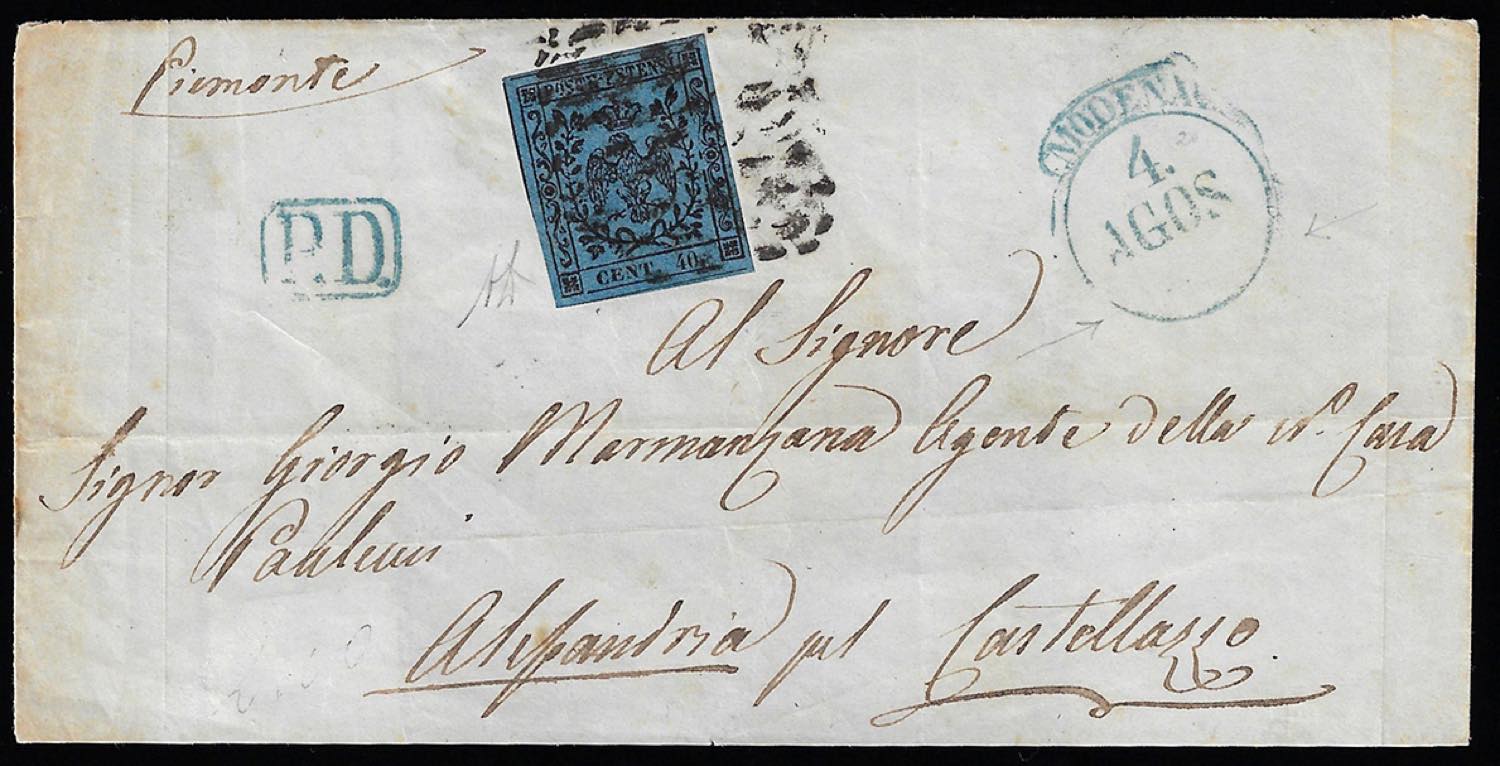 Piemonte
POSTE ESTENSI
CENT. 40.
P.D.
MODENA
4.
AGOS
Al Signore
Signor Giorgio Marmanzana Agente della N.ª Casa
Paulucci
Alessandria pel Castellazzo.